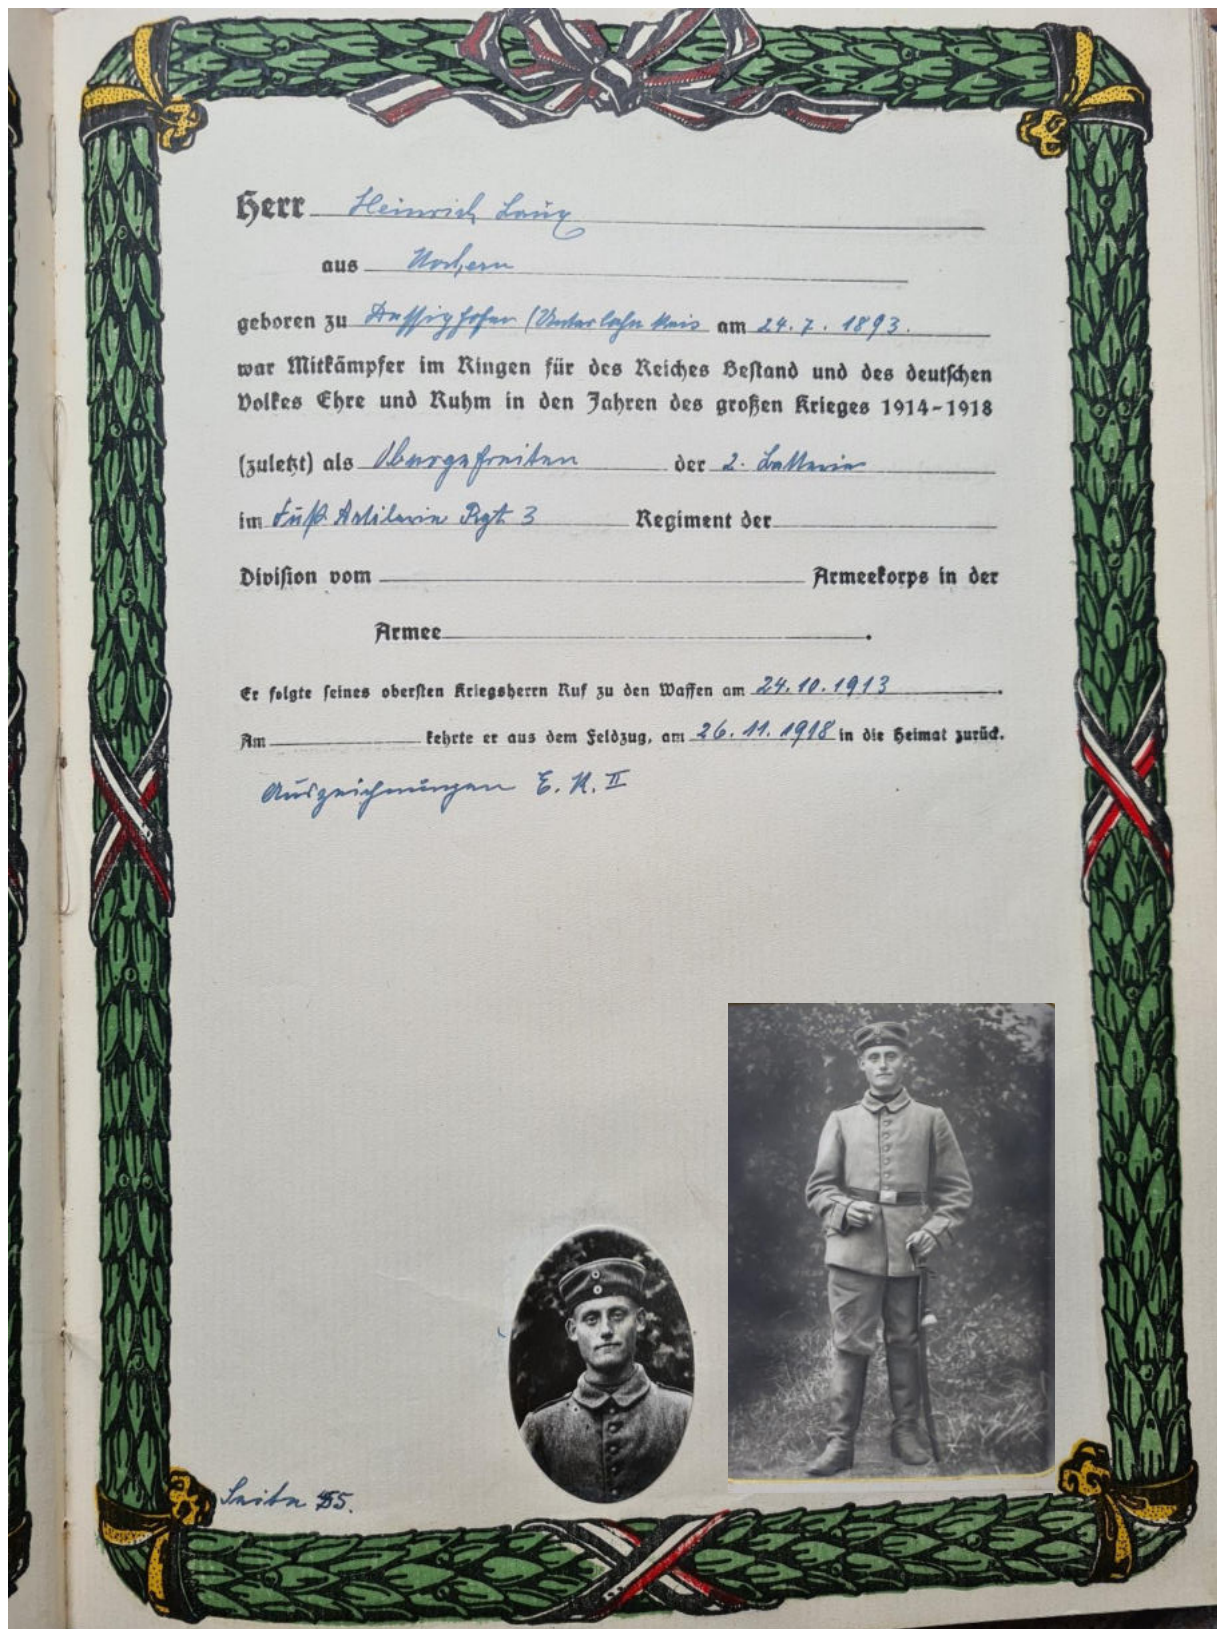 Herr Heinrich Laux
aus Nochern
geboren zu Dessighofen (Unterlahnkreis am 24.7.1893.
war Mitkämpfer im Ringen für des Reiches Bestand und des deutschen
Volkes Ehre und Ruhm in den Jahren des großen Krieges 1914-1918
(zuletzt) als Obergefreiten der 2. Batterie
im Fuß Artilerie Rgt 3 Regiment der
Division vom Armeekorps in der
Armee.
Er folgte seines obersten Kriegsherrn Ruf zu den Waffen am 24.10.1913.
Am kehrte er aus dem Feldzug, am 26.11.1918 in die Heimat zurück.
Auszeichnungen E.K.II
Seite 55.